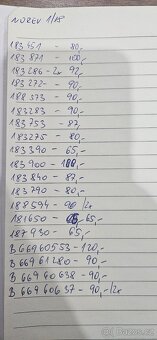 NOREV 1/18
183451 - 80,-
183871 - 100,-
183286 - 2x 92,-
183272 - 90,-
188573 - 90,-
183283 - 90,-
183753 - 87,-
183275 - 80,-
183390 - 65,-
183900 - 100,-
183840 - 87,-
183790 - 80,-
188594 - 90 /2x
181650 - 65,-
187930 - 65,-
B 66960553 - 120,-
B 66961280 - 90,-
B 66960638 - 90,-
B 66960637 - 90,- /2x